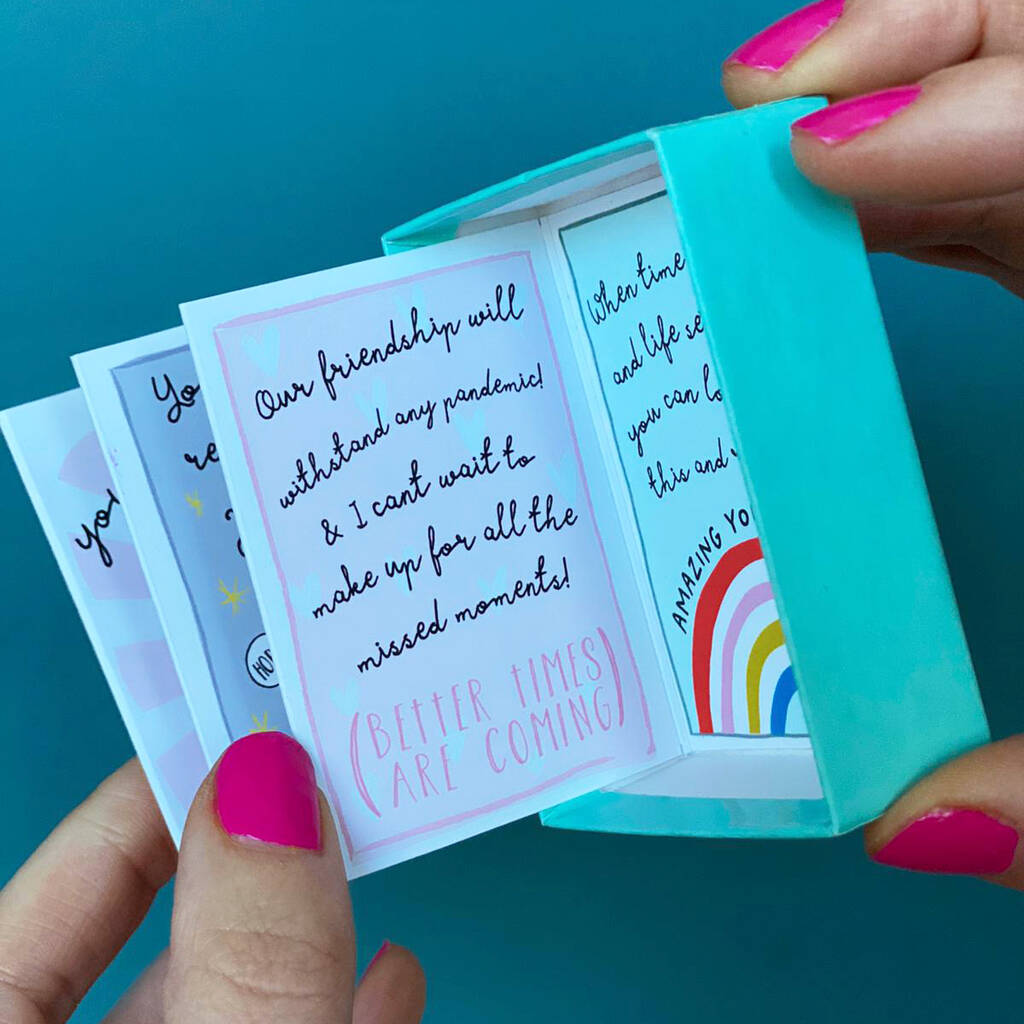 Our friendship will
withstand any pandemic!
& I cant wait to
make up for all the
missed moments!
(BETTER TIMES
ARE COMING)
When time
and life se
you can lo
this and
AMAZING YO
Yo
re
HOP
you